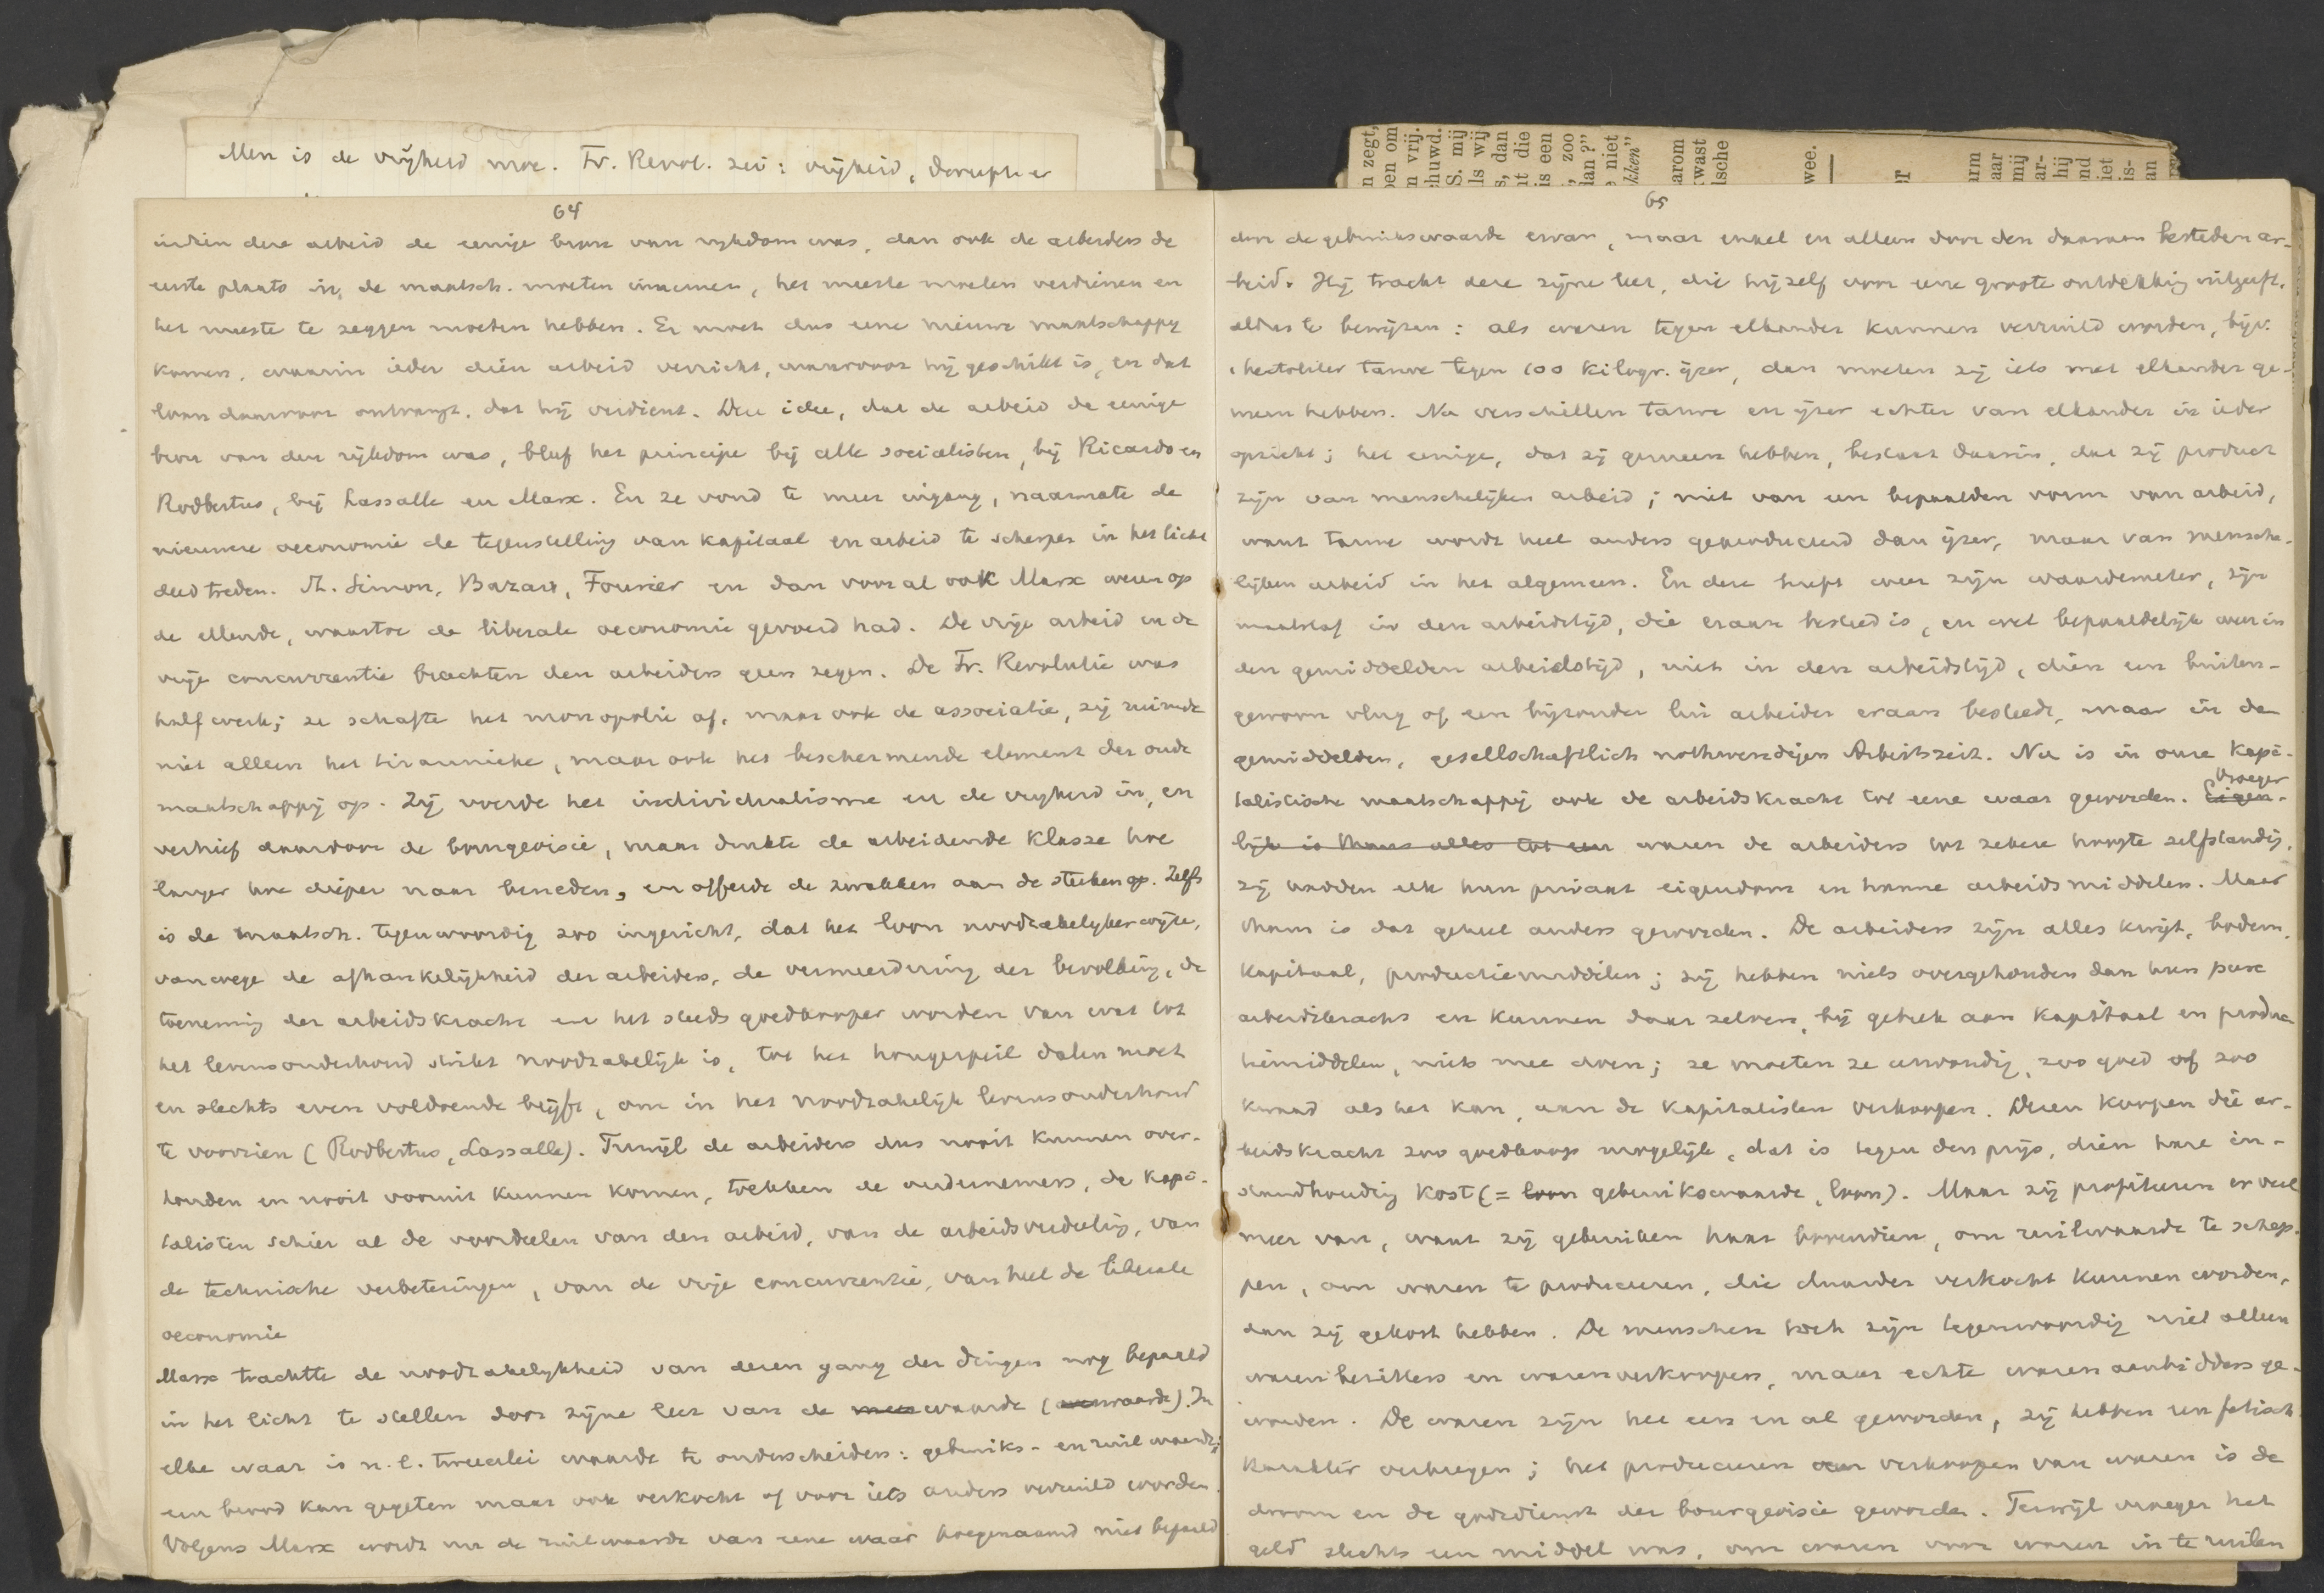 Men is de vrijheid moe. Fr. Revol. zei: vrijheid,
64
indien deze arbeid de eenige bron van rijkdom was, dan ook de arbeiders de
eerste plaats in de maatsch. moeten innemen, het meeste moeten verdienen en
het meeste te zeggen moeten hebben. Er moet dus eene nieuwe maatschappij
komen, waarin ieder dien arbeid verricht, waarvoor hij geschikt is, en dat
loon daarvoor ontvangt, dat hij verdient. Deze idee, dat de arbeid de eenige
bron van den rijkdom was, bleef het principe bij alle socialisten, bij Ricardo en
Rodbertus, bij Lassalle en Marx. En ze vond te meer ingang, naarmate de
nieuwere oeconomie de tegenstelling van kapitaal en arbeid te scherper in het licht
deed treden. St. Simon, Bazard, Fourier en dan vooral ook Marx wezen op
de ellende, waartoe de liberale oeconomie gevoerd had. De vrije arbeid en de
vrije concurrentie brachten den arbeiders geen zegen. De Fr. Revolutie was
half werk; ze schafte het monopolie af, maar ook de associatie, zij ruimde
niet alleen het tirannieke, maar ook het beschermende element der oude
maatschappij op. Zij voerde het individualisme en de vrijheid in, en
verhief daardoor de bourgeoisie, maar drukte de arbeidende klasse hoe
langer hoe dieper naar beneden, en offerde de zwakken aan de sterken op. Zelfs
is de maatsch. tegenwoordig zoo ingericht, dat het loon noodzakelijkerwijze,
vanwege de afhankelijkheid der arbeiders, de vermeerdering der bevolking, de
toeneming der arbeidskracht en het steeds goedkooper worden van wat tot
het levensonderhoud strikt noodzakelijk is, tot het hongerpeil dalen moet
en slechts even voldoende blijft, om in het noodzakelijk levensonderhoud
te voorzien (Rodbertus, Lassalle). Terwijl de arbeiders dus nooit kunnen over-
houden en nooit vooruit kunnen komen, trekken de ondernemers, de kapi-
talisten schier al de voordeelen van den arbeid, van de arbeidsverdeeling, van
de technische verbeteringen, van de vrije concurrentie, van heel de liberale
oeconomie
Marx trachtte de noodzakelijkheid van dezen gang der dingen nog bepaald
in het licht te stellen door zijne leer van de meerwaarde (waarde). In
elke waar is n.l. tweeërlei waarde te onderscheiden: gebruiks- en ruilwaarde;
een brood kan gegeten maar ook verkocht of voor iets anders verruild worden.
Volgens Marx wordt nu de ruilwaarde van eene waar hoegenaamd niet bepaald
65
door de gebruikswaarde ervan, maar enkel en alleen door den daaraan besteden ar-
beid. Hij tracht deze zijne leer, die hijzelf voor eene groote ontdekking uitgeeft,
aldus te bewijzen: als waren tegen elkander kunnen verruild worden, bijv.
1 hectoliter tarwe tegen 100 kilogr. ijzer, dan moeten zij iets met elkander ge-
meen hebben. Nu verschillen tarwe en ijzer echter van elkander in ieder
opzicht; het eenige, dat zij gemeen hebben, bestaat daarin, dat zij product
zijn van menschelijken arbeid; niet van een bepaalden vorm van arbeid,
want tarwe wordt heel anders geproduceerd dan ijzer, maar van mensche-
lijken arbeid in het algemeen. En deze heeft weer zijn waardemeter, zijn
maatstaf in den arbeidstijd, die eraan besteed is, en wel bepaaldelijk weer in
den gemiddelden arbeidstijd, niet in den arbeidstijd, dien een buiten-
gewoon vlug of een bijzonder lui arbeider eraan besteedt, maar in de
gemiddelden, gesellschaftlich nothwendigen Arbeitszeit. Nu is in onze kapi-
talistische maatschappij ook de arbeidskracht tot eene waar geworden. Eigen- Vroeger
lijk is thans alles tot een waren de arbeiders tot zekere hoogte zelfstandig,
zij hadden elk hun privaat eigendom en hunne arbeidsmiddelen. Maar
thans is dat geheel anders geworden. De arbeiders zijn alles kwijt, bodem,
kapitaal, productiemiddelen; zij hebben niets overgehouden dan hun pure
arbeidskracht en kunnen daar zelven, bij gebrek aan kapitaal en produc-
tiemiddelen, niets mee doen; ze moeten ze eenvoudig, zoo goed of zoo
kwaad als het kan, aan de kapitalisten verkoopen. Dezen koopen die ar-
beidskracht zoo goedkoop mogelijk, dat is tegen den prijs, dien hare in-
standhouding kost (= loon gebruikswaarde, loon). Maar zij profiteeren er veel
meer van, want zij gebruiken haar bovendien, om ruilwaarde te schep-
pen, om waren te produceeren, die duurder verkocht kunnen worden,
dan zij gekost hebben. De menschen toch zijn tegenwoordig niet alleen
warenbezitters en warenverkoopers, maar echte warenaanbidders ge-
worden. De waren zijn het een en al geworden, zij hebben een fetisch
karakter verkregen; het produceeren en verkoopen van waren is de
droom en de godsdienst der bourgeoisie geworden. Terwijl vroeger het
geld slechts een middel was, om waren voor waren in te ruilen
n zegt,
pen om
n vrij.
huwd.
S. mij
ls wij
s, dan
it die
is een
, zoo
dan?"
e niet
kken"
arom
wast
lsche
wee.
er
arm
aar
mij
ar-
hij
ond
iet
is-
an